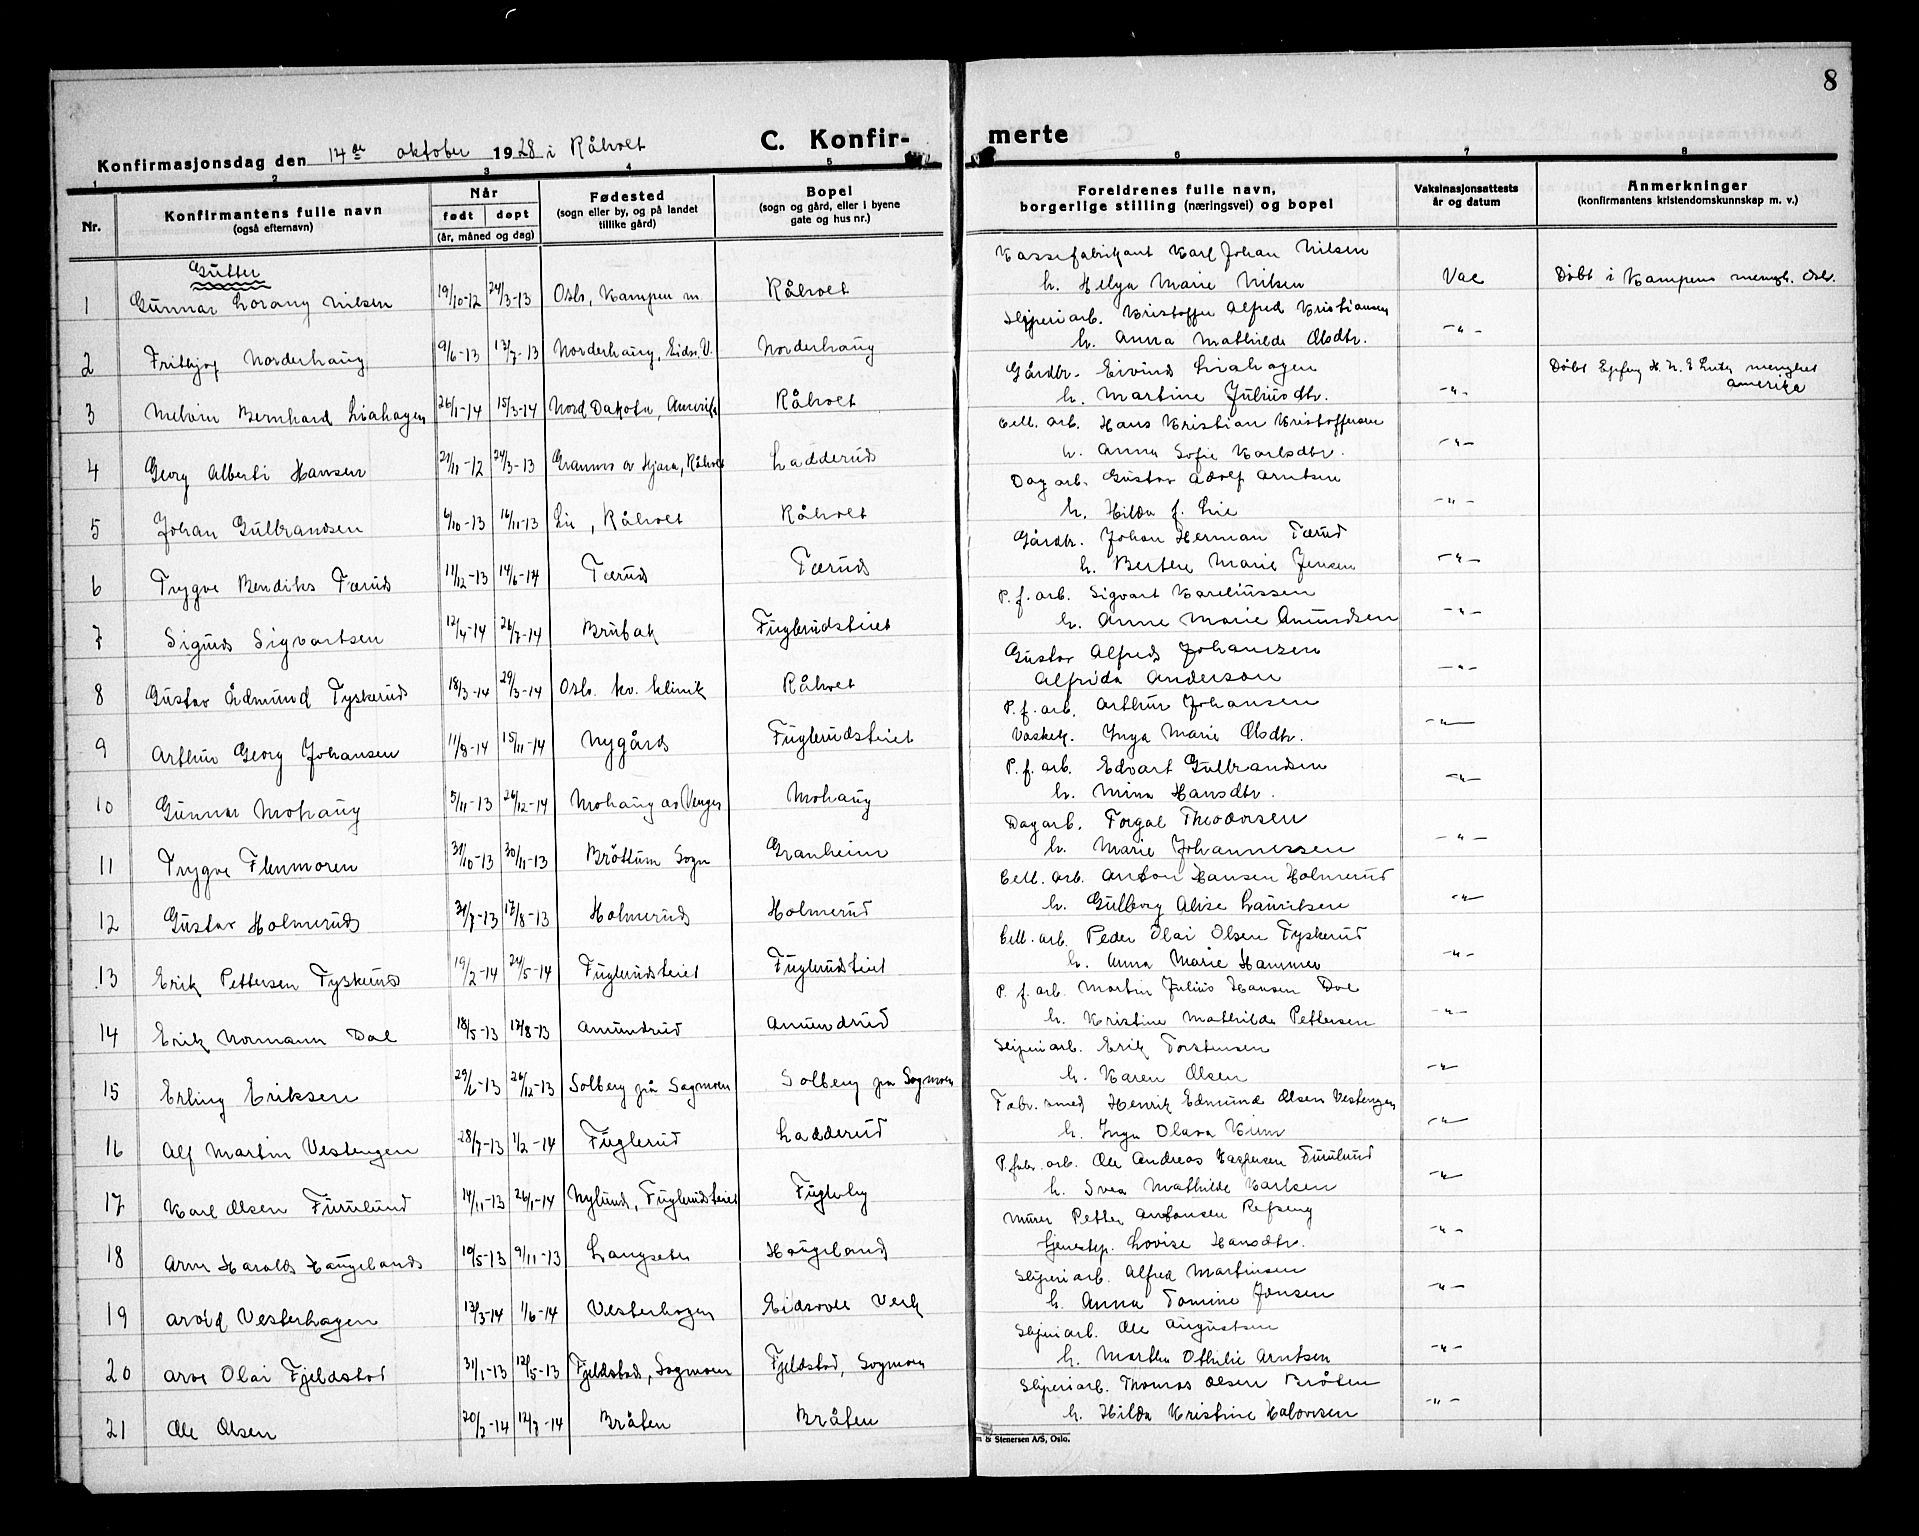 8
Konfirmasjonsdag den 14de oktober 1928 i Råholt C. Konfir- merte
1 2 3 4 5 6 7 8
Nr. Konfirmantens fulle navn (også efternavn) Når født døpt (år, måned og dag) Fødested (sogn eller by, og på landet tillike gård) Bopel (sogn og gård, eller i byene gate og hus nr.) Foreldrenes fulle navn, borgerlige stilling (næringsvei) og bopel Vaksinasjonsattests år og datum Anmerkninger (konfirmantens kristendomskunnskap m. v.)
Gutter
Kassefabrikant Karl Johan Nilsen
1 Gunnar Lorang Nilsen 19/10-12 24/3-13 Oslo, Kampen m. Råholt h. Helga Marie Nilsen Vac Døbt i Kampens mengh. Osl.
Sliperiarb. Kristoffer Alfred Kristiansen
2 Fritjof Norderhaug 9/6-13 13/7-13 Norderhaug, Eidsv. V. Norderhaug h. Anna Mathilde Olsdtr. -"-
Gårdbr. Eivind Liahagen
3 Melvin Bernhard Liahagen 26/1-14 15/3-14 Nord Dakota, Amerika Råholt h. Martine Juliusdtr. -"- Døbt H. N. E Luth. menghet Amerika
Cell. arb. Hans Kristian Kristoffersen
4 Georg Alberti Hansen 21/11-12 24/3-13 Granmo av Hjara, Råholt Ladderud h. Anna Sofie Karlsdtr. -"-
Dagarb. Gustav Adolf Arntsen
5 Johan Gulbrandsen 6/10-13 16/11-13 Lie, Råholt Råholt h. Hilda f. Lie -"-
Gårdbr. Johan Herman Tærud
6 Trygve Bendiks Tærud 11/12-13 14/6-14 Tærud Tærud h. Berthe Marie Jensen -"-
P. f. arb. Sigvart Kareliussen
7 Sigurd Sigvartsen 12/4-14 26/7-14 Brubak Fuglerudsteiet h. Anne Marie Amundsen -"-
Gustav Alfred Johansen
8 Gustav Ådmund Tyskerud 18/3-14 29/3-14 Oslo. kv. klinik Råholt Alfrida Anderson -"-
P. f. arb. Arthur Johansen
9 Arthur Georg Johansen 11/8-14 15/11-14 Nygård Fuglerudsteiet Vaskek. Inga Marie Olsdtr. -"-
P. f. arb. Edvart Gulbrandsen
10 Gunnar Mohaug 5/11-13 26/12-14 Mohaug av Venger Mohaug h. Mina Hansdtr. -"-
Dagarb. Torgal Theodorsen
11 Trygve Flenmoren 31/10-13 30/11-13 Brøttum Sogn Granheim h. Marie Johannessen -"-
Cell. arb. Anton Hansen Holmerud
12 Gustav Holmerud 31/7-13 17/8-13 Holmerud Holmerud h. Gulborg Alise Lauritsen -"-
Cell. arb. Peder Olai Olsen Tyskerud
13 Erik Pettersen Tyskerud 19/2-14 24/5-14 Fuglerudsteiet Fuglerudsteiet h. Anna Marie Hammer -"-
P. f. arb. Martin Julius Hansen Dal
14 Erik Normann Dal 18/5-13 17/8-13 Amundrud Amundrud h. Kristine Mathilde Pettersen -"-
Sliperiarb. Erik Torstensen
15 Erling Eriksen 29/6-13 26/12-13 Solberg på Sagmoen Solberg på Sagmoen h. Karen Olsen -"-
Fabr. smed Henrik Edmund Olsen Vestengen
16 Alf Martin Vestengen 28/7-13 1/2-14 Fuglerud Ladderud h. Inga Olava -"-
P. fabr. arb. Ole Andreas Kaspersen Furulund
17 Karl Olsen Furulund 14/11-13 26/1-14 Nylund, Fuglerudsteiet Fugleby h. Svea Mathilde Karlsen -"-
Murer Petter Antonsen Refseng
18 Arne Harald Haugeland 10/5-13 9/11-13 Langseter Haugeland tjenestep. Lovise Hansdtr. -"-
Sliperiarb. Alfred Martinsen
19 Arvid Vesterhagen 13/3-14 1/6-14 Vesterhagen Eidsvoll Verk h. Anna Tomine Jensen -"-
Sliperiarb. Ole Augustsen
20 Arve Olai Fjeldstad 31/1-13 12/5-13 Fjeldstad, Sagmoen Fjeldstad, Sagmoen h. Martha Othilie Arntsen -"-
Sliperiarb. Thomas Olsen Bråten
21 Ole Olsen 20/3-14 12/7-14 Bråten Bråten h. Hilda Kristine Halvorsen -"-
& Stenersen A/S, Oslo.